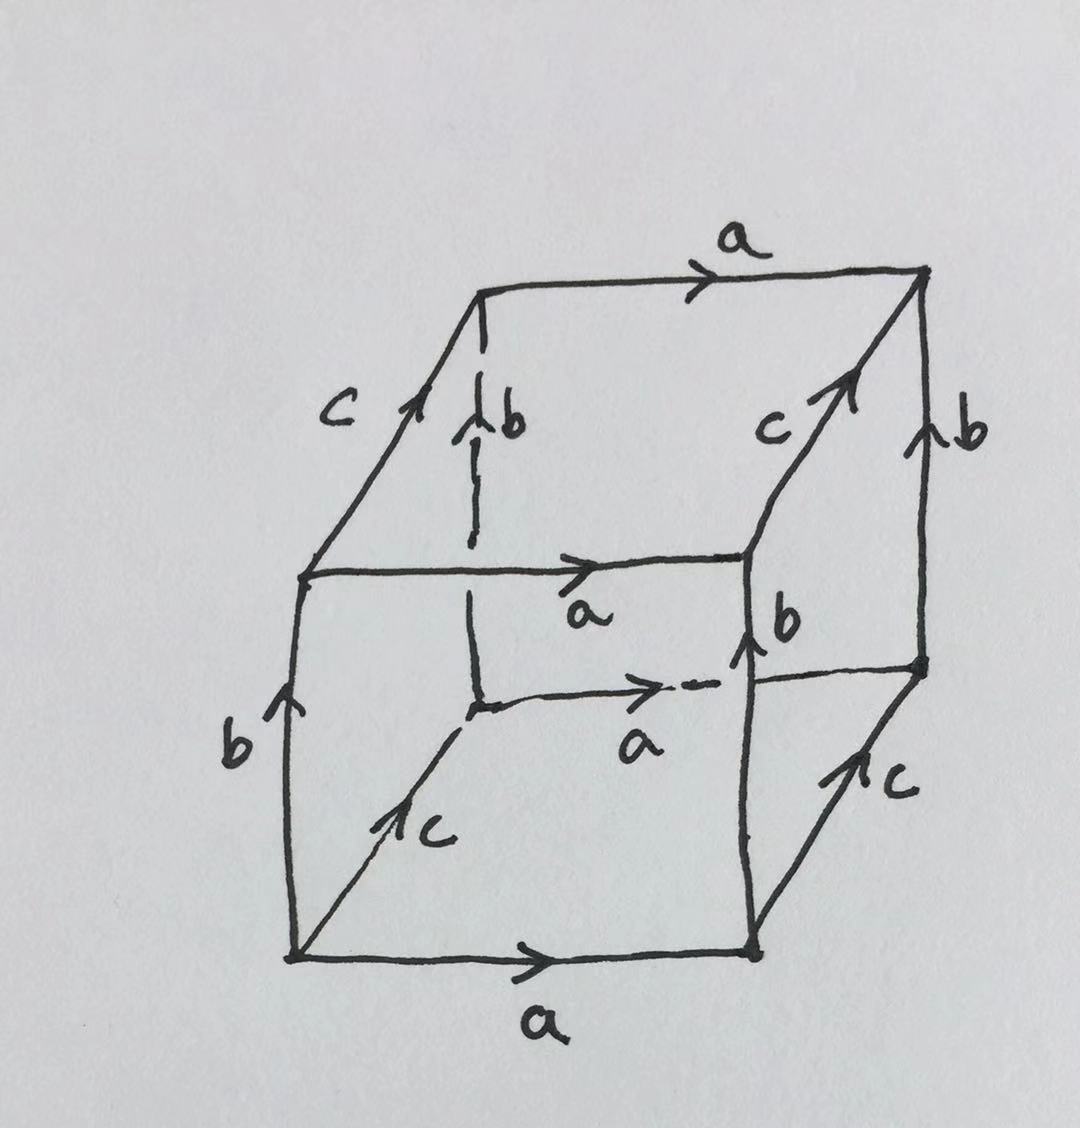 a
c
b
c
b
a
b
b
a
c
c
a